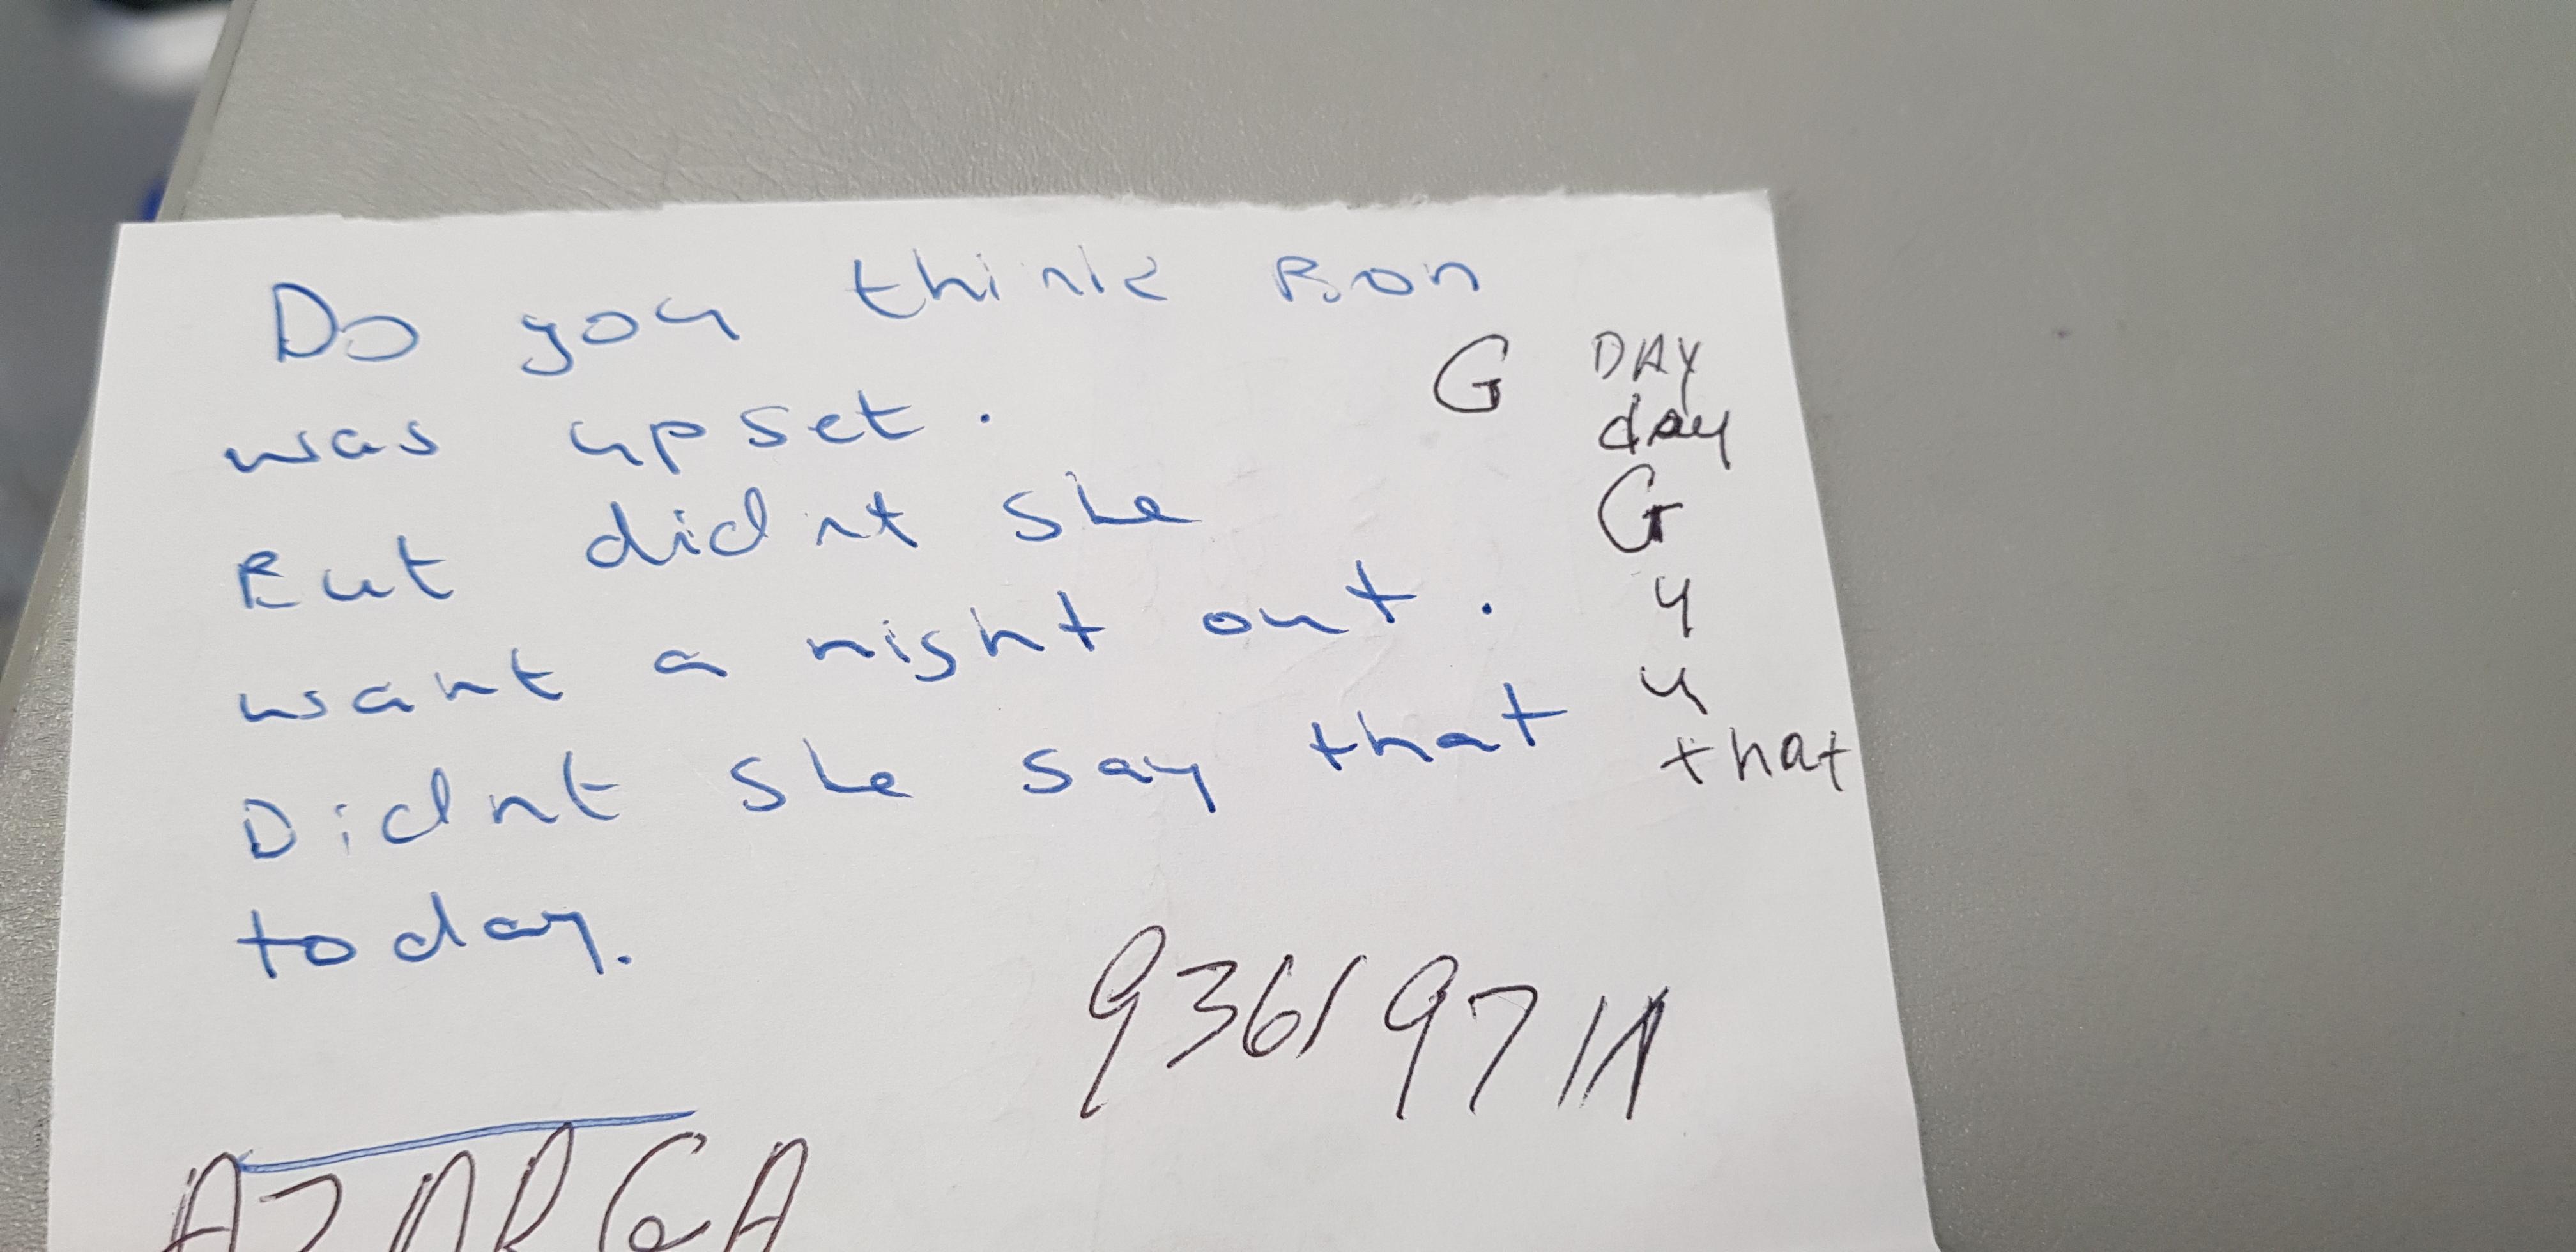 Do you think Ron
was upset.
But didnt she
want a night out.
Didnt she say that
today.
G DAY
day
G
y
y
that
9361971